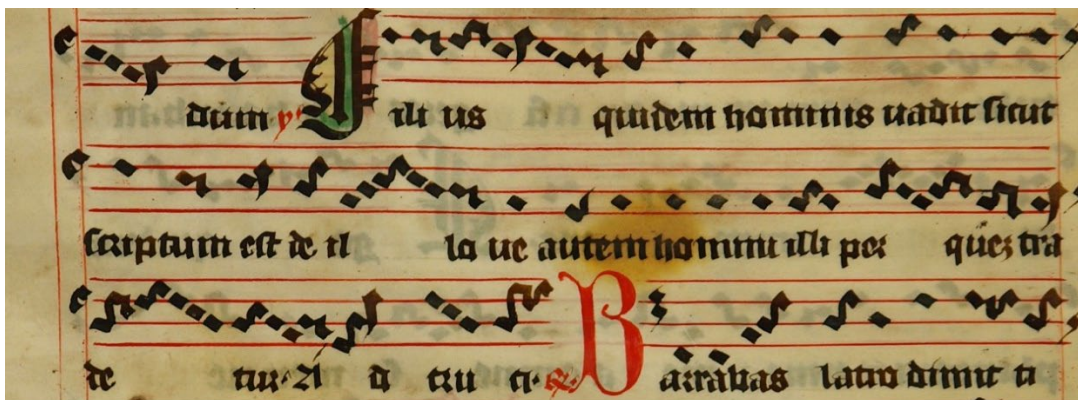 dium ℣ Filius quidem hominis uadit sicut
scriptum est de illo ue autem homini illi per quem tra
detur. Ad tru ti. ℟ Barrabas latro dimit ti